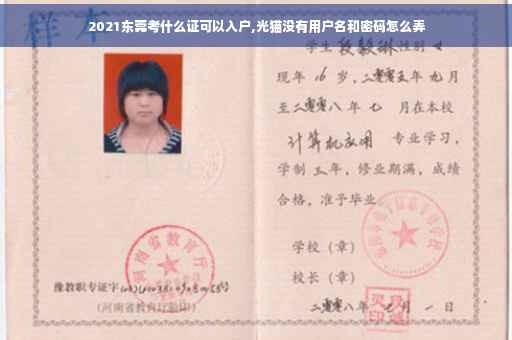 2021东莞考什么证可以入户,光猫没有用户名和密码怎么弄
样本
学生段毅琳性别女
现年16岁，二零零五年九月
至二零零八年七月在本校
计算机应用 专业学习，
学制三年，修业期满，成绩
合格，准予毕业
学校（章）
校长（章）
二零零八年七月一日
河南省教育厅
豫教职专证字
（河南省教育厅验印）